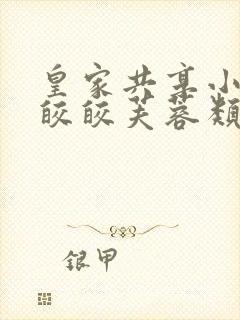 皇家共享小
皎皎芙蓉颊
银甲